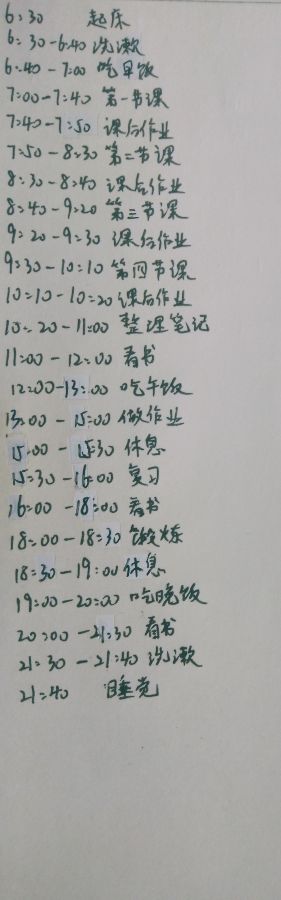 6:30 起床
6:30-6:40 洗漱
6:40-7:00 吃早饭
7:00-7:40 第一节课
7:40-7:50 课后作业
7:50-8:30 第二节课
8:30-8:40 课后作业
8:40-9:20 第三节课
9:20-9:30 课后作业
9:30-10:10 第四节课
10:10-10:20 课后作业
10:20-11:00 整理笔记
11:00-12:00 看书
12:00-13:00 吃午饭
13:00-15:00 做作业
15:00-15:30 休息
15:30-16:00 复习
16:00-18:00 看书
18:00-18:30 锻炼
18:30-19:00 休息
19:00-20:00 吃晚饭
20:00-21:30 看书
21:30-21:40 洗漱
21:40 睡觉